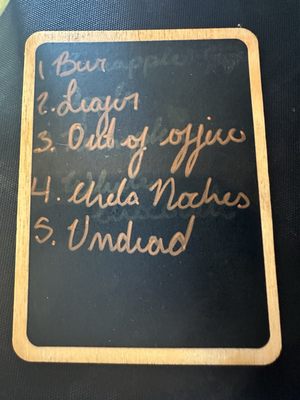 1 Bur
2. Leager
3. Out of office
4. Chela Noches
5. Undead